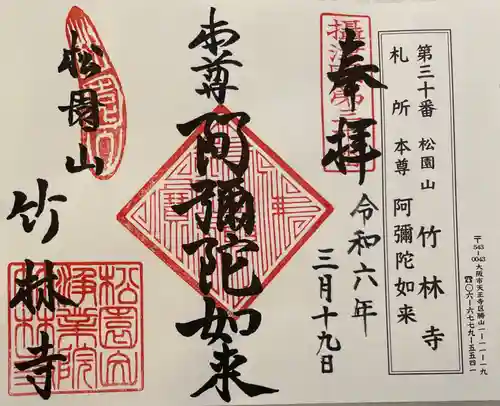 第三十番 松園山 竹林寺
札所本尊 阿彌陀如来
〒543-0043 大阪市天王寺区勝山一-一一-一九
☎〇六-六七七九-五五四一
奉拝
令和六年
三月十九日
本尊
阿彌陀如来
松園山
竹林寺
松園山
浄業院
竹林寺